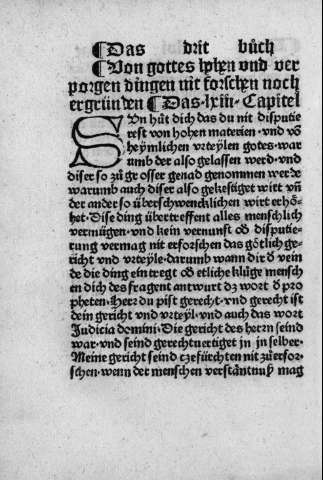 ¶Das drit bůch
¶Von gottes hohen vnd ver
porgen dingen nit forschen noch
ergründen ¶Das·lxiii·Capitel
SVn hůt dich das du nit disputie
rest von hohen materien·vnd võ
heymlichen vrteylen gotes·war
umb der also gelassen werd·vnd
diser so zů ge osser genad genommen werde
warumb auch diser also gekestiget wirt vñ
der ander so überschwencklichen wirt erhö-
het·Dise ding übertreffent alles menschlich
vermügen·vnd kein vernunft ob disputie-
rung vermag nit erforschen das götlich ge-
richt vnd vrteyle·darumb wann dir d̕ vein
de die ding ein tregt ob etliche klüge mensch
en dich des fragent antwurt dz wort d̕ pro
pheten·Herr du pist gerecht·vnd gerecht ist
dein gericht vnd vrteyl·vnd auch das wort
Judicia domini·Die gericht des herrn seind
war·vnd seind gerechtuertiget in jn selber·
Meine gericht seind czefürchten nit zů erfor-
schen·wenn der menschen verstäntnuß mag